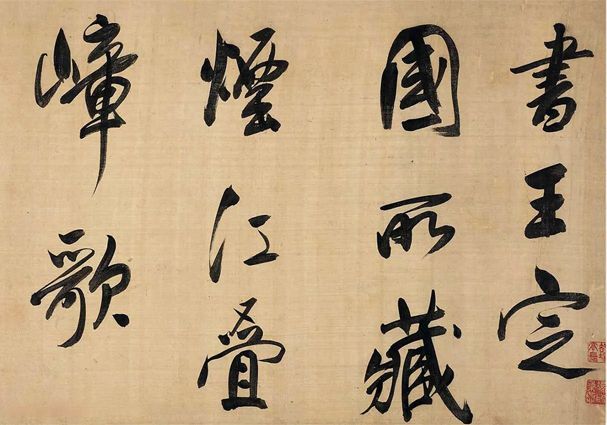 書王定
國所藏
煙江疊
嶂歌